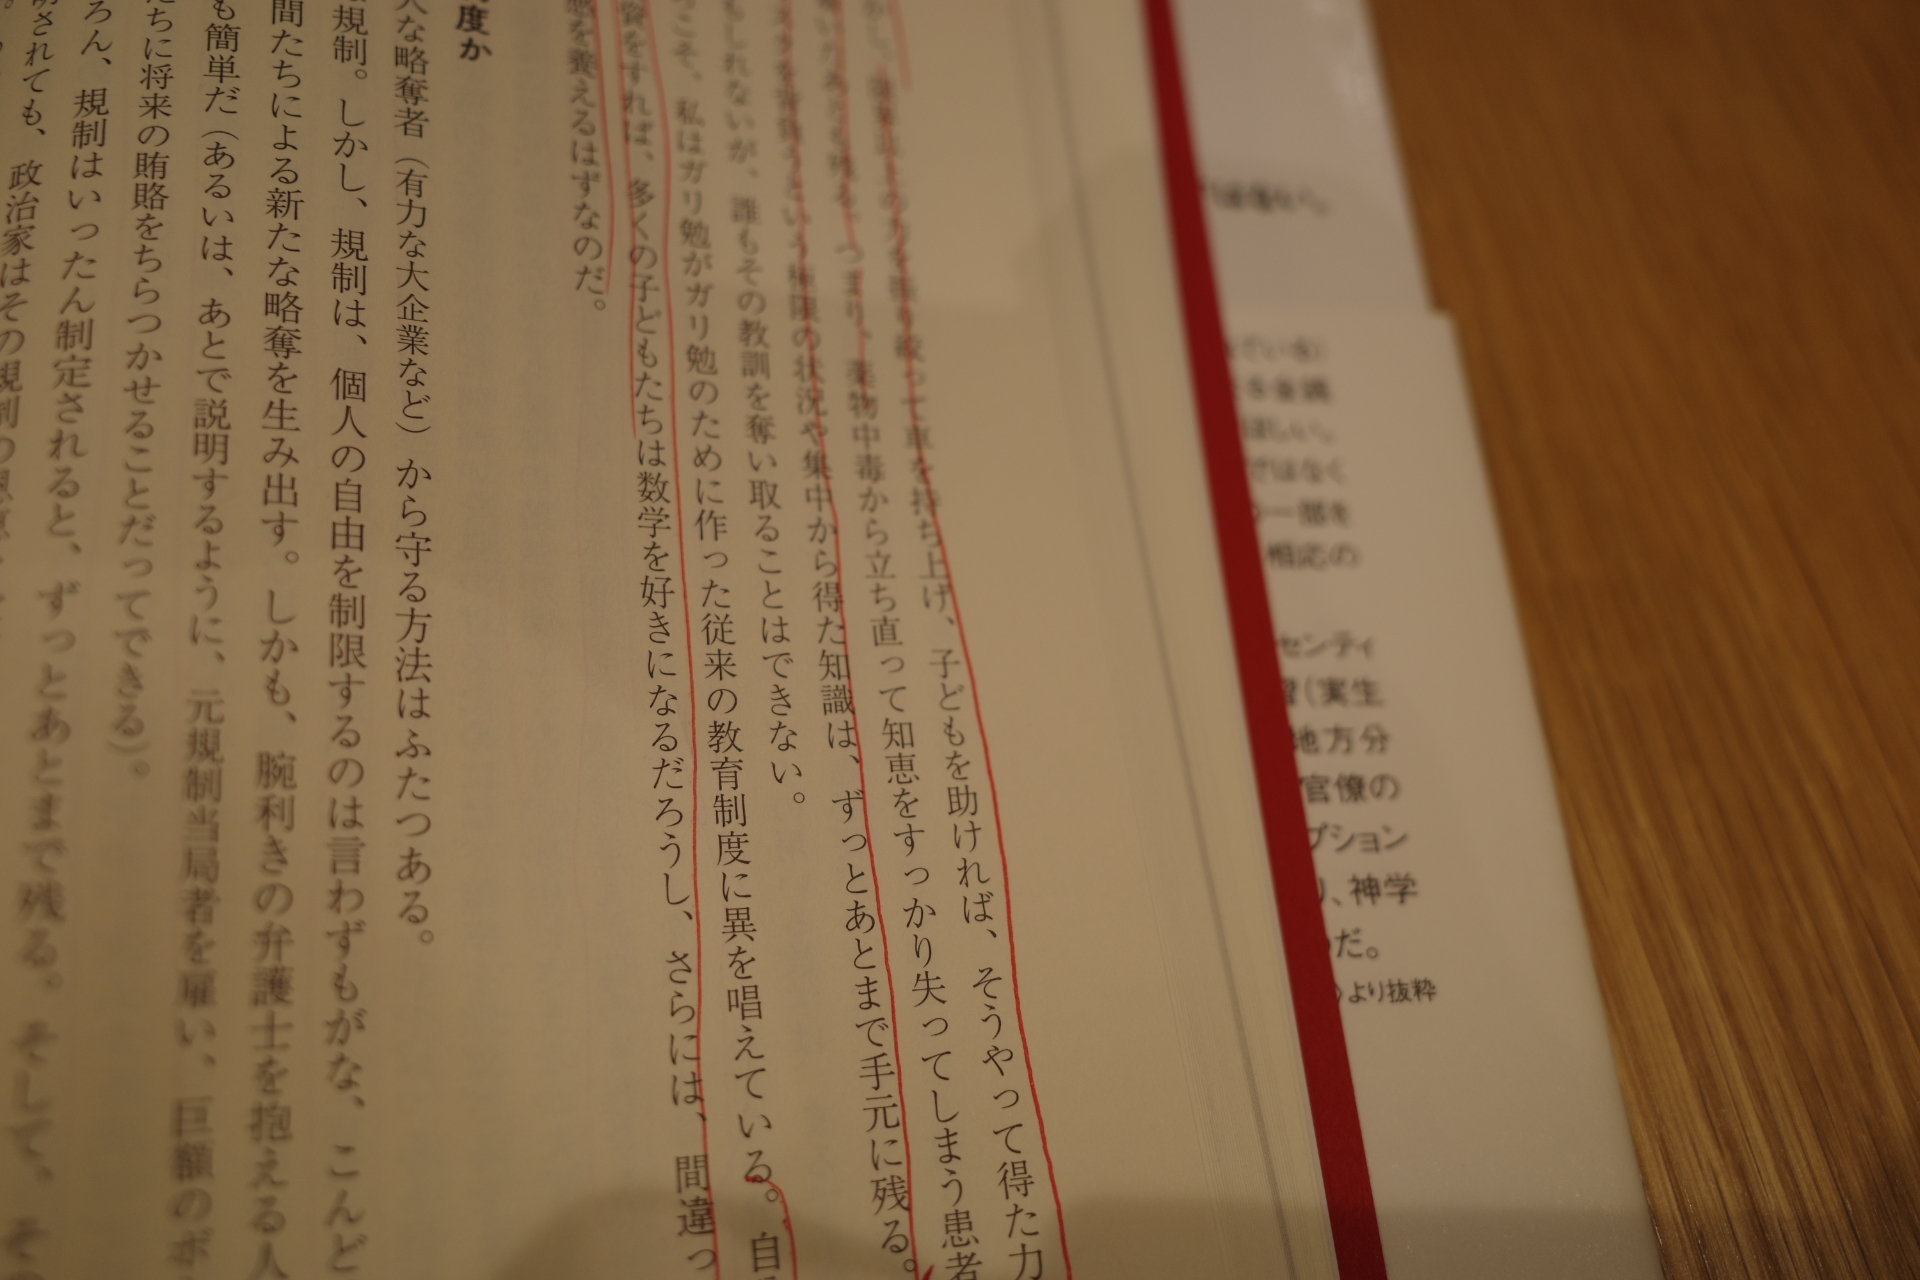 以上の力を振り絞って車を持ち上げ、子どもを助ければ、そうやって得た力
も残る。つまり、薬物中毒から立ち直って知恵をすっかり失ってしまう患者
という極限の状況や集中から得た知識は、ずっとあとまで手元に残る。
もしれないが、誰もその教訓を奪い取ることはできない。
こそ、私はガリ勉がガリ勉のために作った従来の教育制度に異を唱えている。自
資をすれば、多くの子どもたちは数学を好きになるだろうし、さらには、間違っ
感を養えるはずなのだ。
度か
な略奪者（有力な大企業など）から守る方法はふたつある。
規制。しかし、規制は、個人の自由を制限するのは言わずもがな、こんど
間たちによる新たな略奪を生み出す。しかも、腕利きの弁護士を抱える人
も簡単だ（あるいは、あとで説明するように、元規制当局者を雇い、巨額のボ
ちに将来の賄賂をちらつかせることだってできる）。
ろん、規制はいったん制定されると、ずっとあとまで残る。そして、そ
されても、政治家はその規制の
ている
ではなく
一部を
相応の
センティ
（実生
地方分
官僚の
プション
、神学
だ。
より抜粋